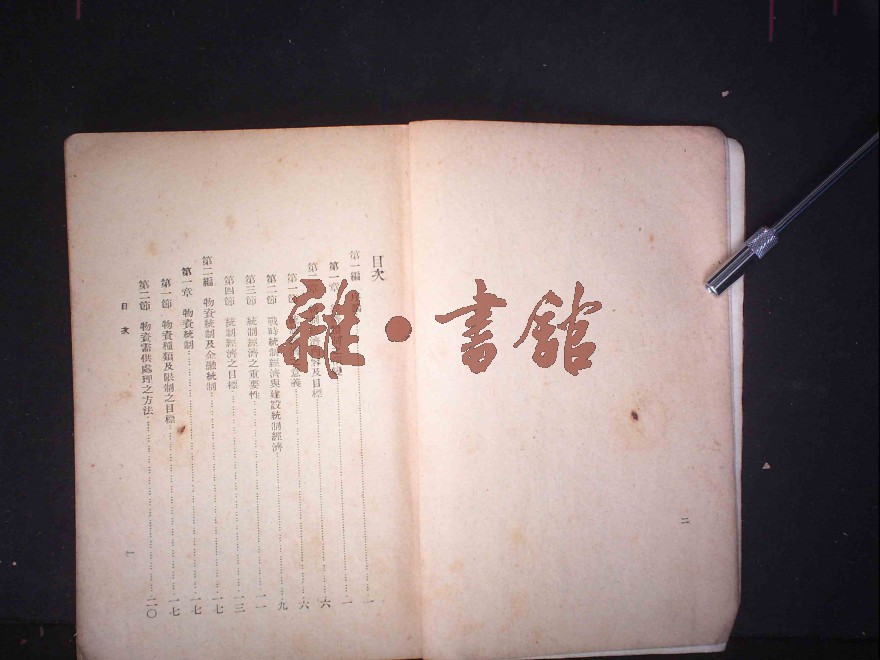 二
目次
第一編 一
第一章 一
第二章 及目標 六
第一節 意義 六
第二節 戰時統制經濟與建設統制經濟 九
第三節 統制經濟之重要性 一一
第四節 統制經濟之目標 一三
第二編 物資統制及金融統制 一七
第一章 物資統制 一七
第一節 物資種類及限制之目標 一七
第二節 物資需供處理之方法 二〇
目次
一
雜·書館